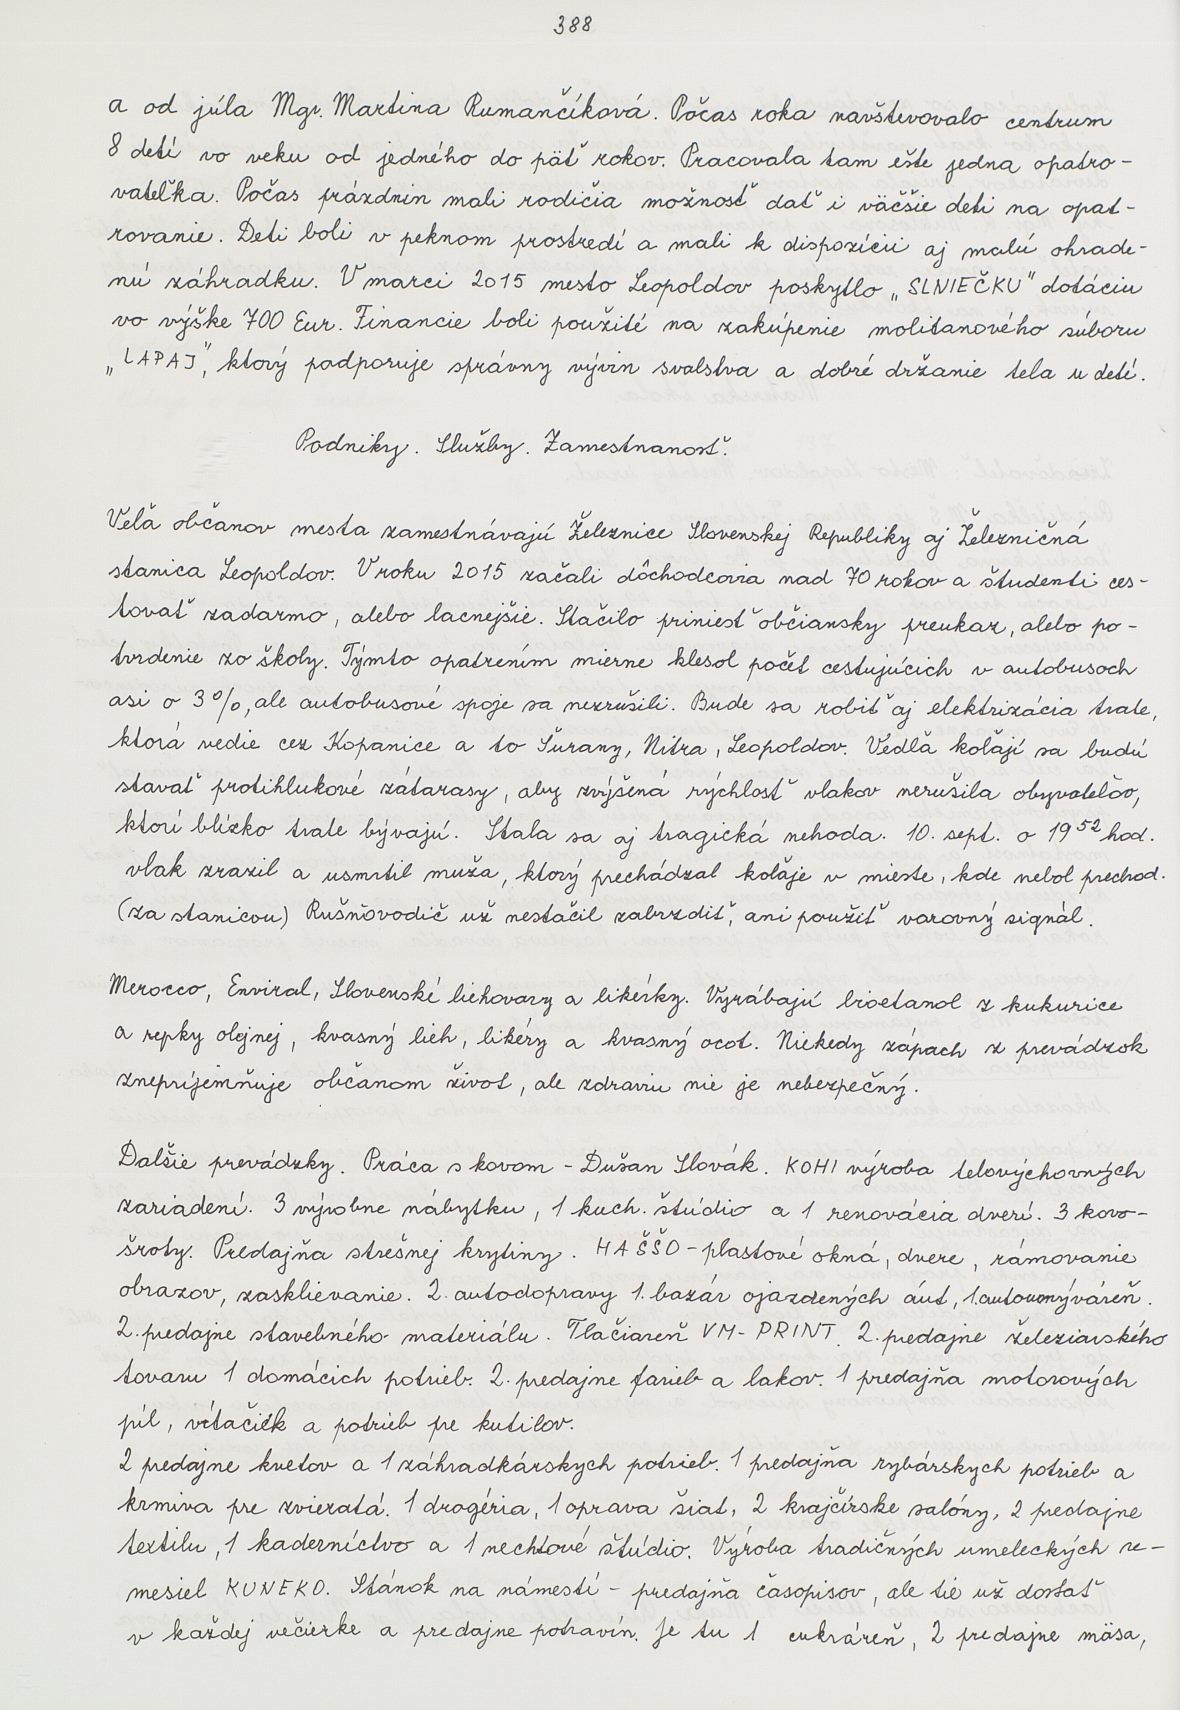 388
a od júla Mgr. Martina Rumančíková. Počas roka navštevovalo centrum
8 detí vo veku od jedného do päť rokov. Pracovala tam ešte jedna opatro-
vateľka. Počas prázdnin mali rodičia možnosť dať i väčšie deti na opat-
rovanie. Deti boli v peknom prostredí a mali k dispozícii aj malú ohrade-
nú záhradku. V marci 2015 mesto Leopoldov poskytlo „SLNIEČKU" dotáciu
vo výške 700 Eur. Financie boli použité na zakúpenie molitanového súboru
„LAPAJ", ktorý podporuje správny vývin svalstva a dobré držanie tela u detí.
Podniky. Služby. Zamestnanosť.
Veľa občanov mesta zamestnávajú Železnice Slovenskej Republiky aj Železničná
stanica Leopoldov. V roku 2015 začali dôchodcovia nad 70 rokov a študenti ces-
tovať zadarmo, alebo lacnejšie. Stačilo priniesť občiansky preukaz, alebo po-
tvrdenie zo školy. Týmto opatrením mierne klesol počet cestujúcich v autobusoch
asi o 3%, ale autobusové spoje sa nezrušili. Bude sa robiť aj elektrizácia trate,
ktorá vedie cez Kopanice a to Šurany, Nitra, Leopoldov. Vedľa koľají sa budú
stavať protihlukové zátarasy, aby zvýšená rýchlosť vlakov nerušila obyvateľov,
ktorí blízko trate bývajú. Stala sa aj tragická nehoda. 10. sept. o 19⁵² hod.
vlak zrazil a usmrtil muža, ktorý prechádzal koľaje v mieste, kde nebol prechod.
(za stanicou) Rušňovodič už nestačil zabrzdiť, ani použiť varovný signál.
Merocco, Enviral, Slovenské liehovary a likérky. Vyrábajú bioetanol z kukurice
a repky olejnej, kvasný lieh, likéry a kvasný ocot. Niekedy zápach z prevádzok
znepríjemňuje občanom život, ale zdraviu nie je nebezpečný.
Ďalšie prevádzky. Práca s kovom - Dušan Slovák. KOHI výroba telovýchovných
zariadení. 3 výrobne nábytku, 1 kuch. štúdio a 1 renovácia dverí. 3 kovo-
šroty. Predajňa strešnej krytiny. HAŠŠO - plastové okná, dvere, rámovanie
obrazov, zasklievanie. 2. autodopravy 1. bazár ojazdených áut, 1. autoumýváreň.
2. predajne stavebného materiálu. Tlačiareň VM-PRINT. 2. predajne železiarského
tovaru 1 domácich potrieb. 2. predajne farieb a lakov. 1 predajňa motorových
píl, vŕtačiek a potrieb pre kutilov.
2 predajne kvetov a 1 záhradkárskych potrieb. 1 predajňa rybárskych potrieb a
krmiva pre zvieratá. 1 drogéria, 1 oprava šiat, 2 krajčírske salóny, 2 predajne
textilu, 1 kaderníctvo a 1 nechtové štúdio. Výroba tradičných umeleckých re-
mesiel KUNEKO. Stánok na námestí - predajňa časopisov, ale tie už dostať
v každej večierke a predajne potravín. Je tu 1 cukráreň, 2 predajne mäsa,